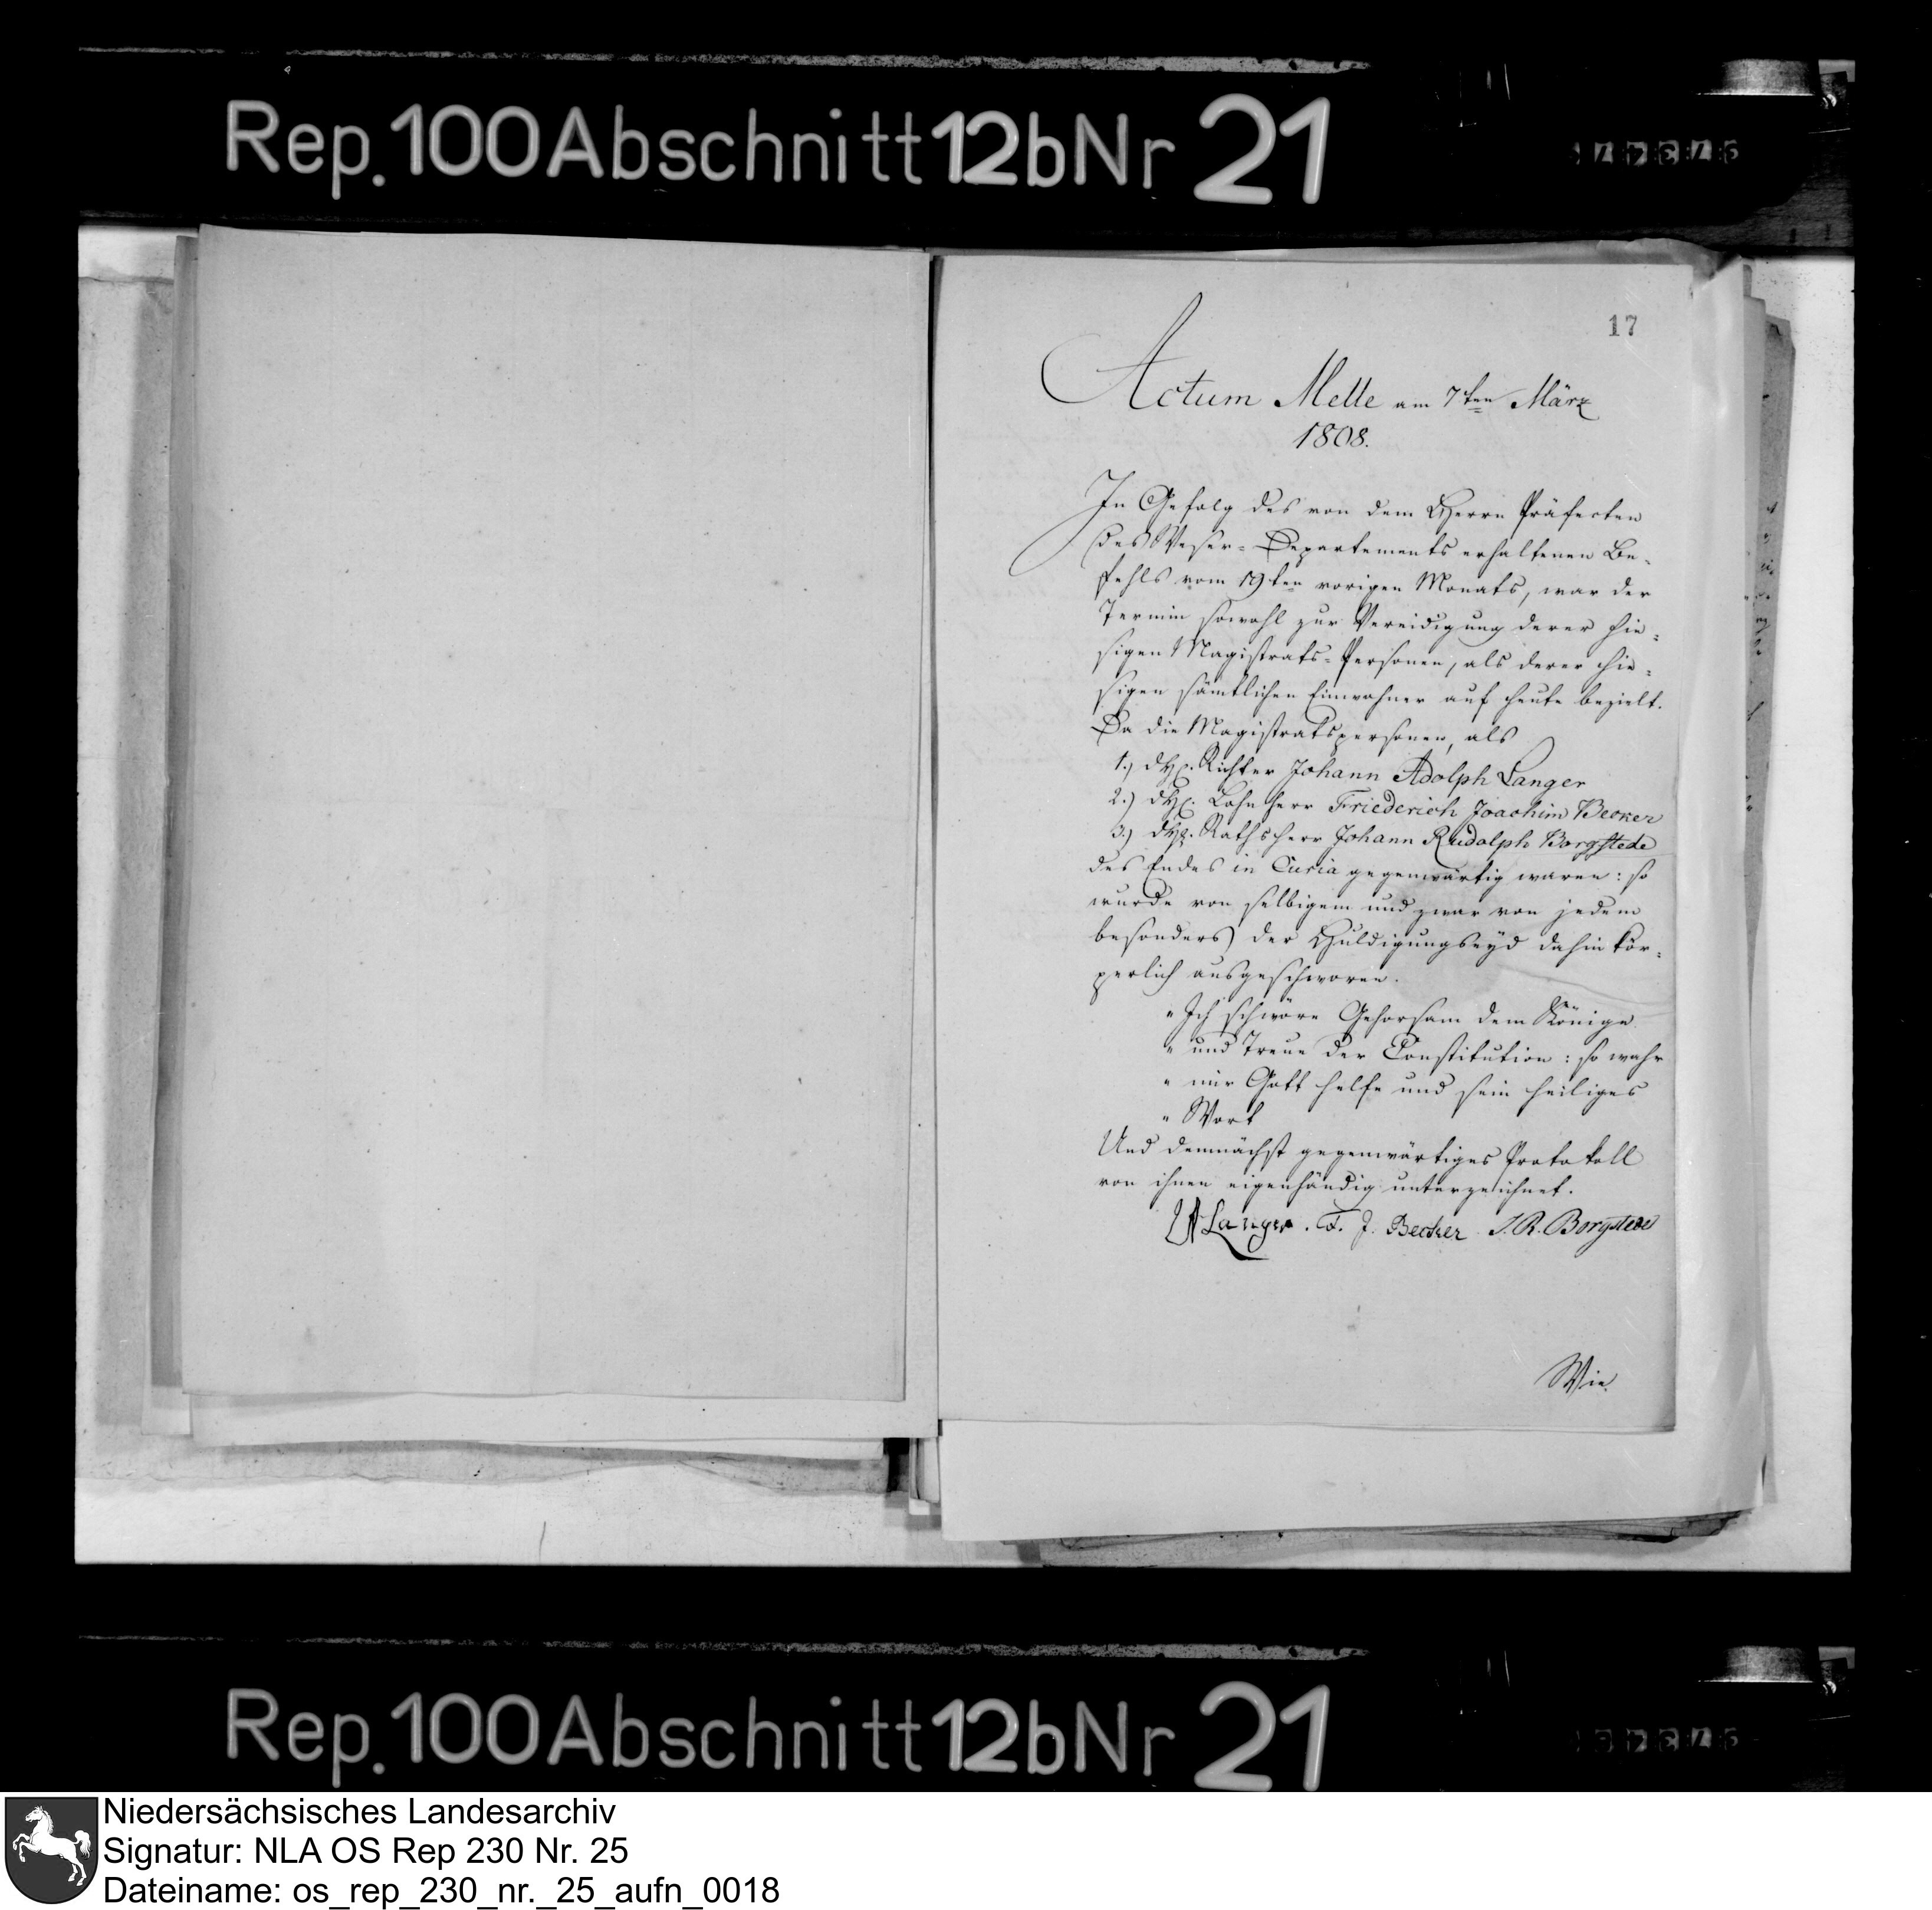 Rep. 100 Abschnitt 12b Nr 21
17
Actum Melle am 7ten März
1808.
In Gefolg des von dem Herrn Präfecten
des Weser-Departements erhaltenen Be-
fehls vom 19ten vorigen Monats, war der
Termin sowohl zur Vereidigung derer hie-
sigen Magistrats-Personen, als derer hie-
sigen sämtlichen Einwohner auf heute bezielt.
Da die Magistratspersonen, als
1.) Richter Johann Adolph Langer
2.) Lohnherr Friederich Joachim Becker
3.) Rathsherr Johann Rudolph Borgstede
des Endes in Curia gegenwärtig waren: so
wurde von selbigem und zwar von jedem
besonders der Huldigungseyd dahin kör-
perlich ausgeschworen.
"Ich schwöre Gehorsam dem Könige
" und Treue der Constitution: so wahr
" mir Gott helfe und sein heiliges
" Wort
Und demnächst gegenwärtiges Protokoll
von ihnen eigenhändig unterzeichnet.
Langer. F. J. Becker J. R. Borgstede
Wie
Rep. 100 Abschnitt 12b Nr 21
Niedersächsisches Landesarchiv
Signatur: NLA OS Rep 230 Nr. 25
Dateiname: os_rep_230_nr._25_aufn_0018